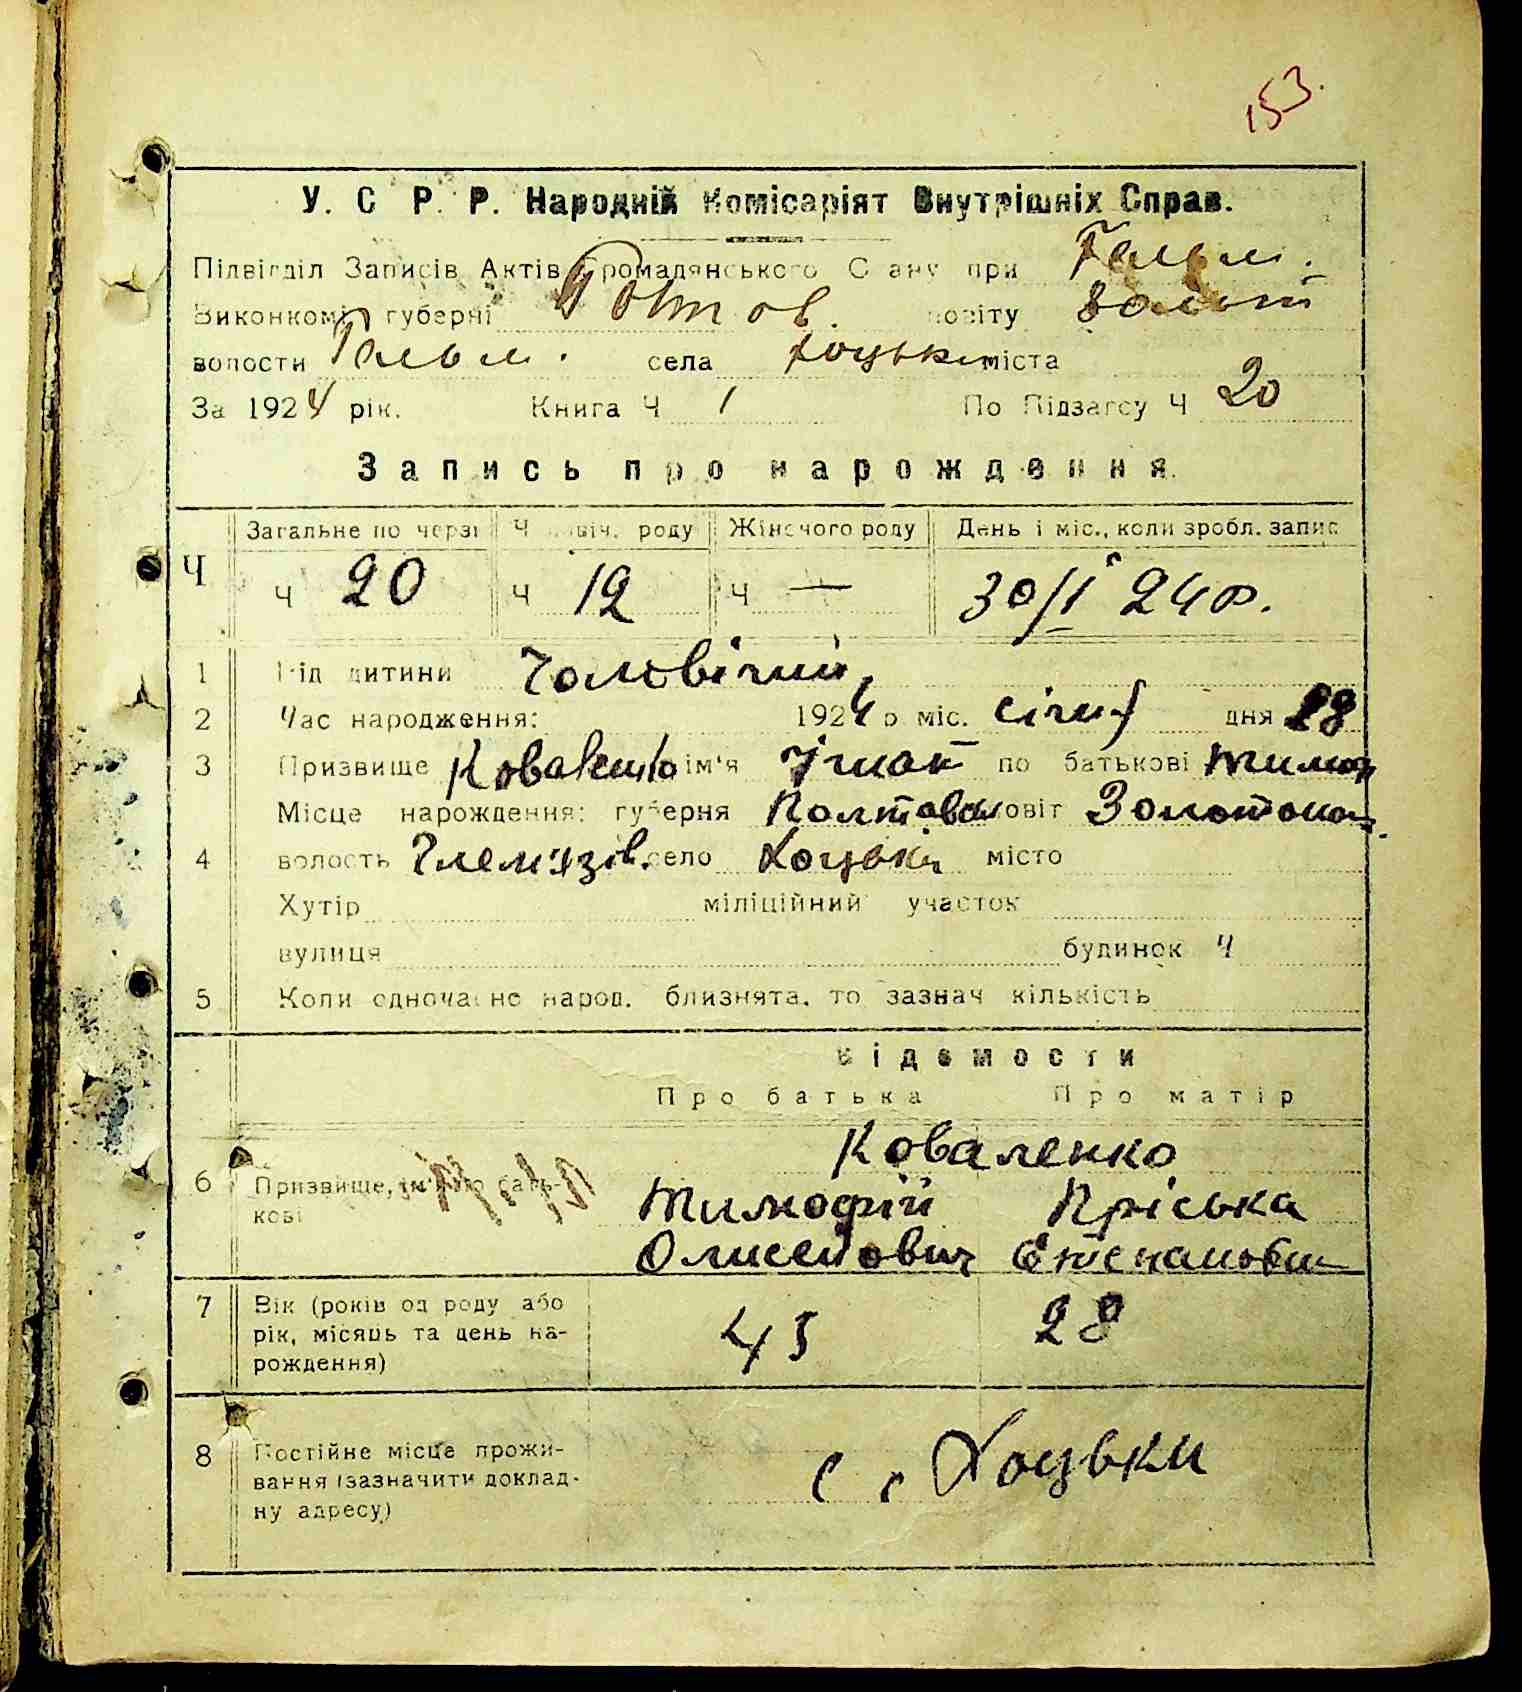 153.
У. С. Р. Р. Народній Комісаріят Внутрішніх Справ.
Підвідділ Записів Актів Громадянського Стану при Гельм.
Виконкомі губерні Полтов. повіту Золот
волости Гельм. села Хоцьки міста
За 1924 рік. Книга Ч 1 По Підзагсу Ч 20
Запись про нарождення.
Загальне по черзі Ч ловіч. роду Жіночого роду День і міс., коли зробл. запис
Ч Ч 20 Ч 12 Ч — 30/I 24 р.
1 Рід дитини Чоловічий,
2 Час народження: 1924 р міс. січня дня 28
3 Призвище Коваленко ім'я Ігнат по батькові Тимоф
Місце нарождення: губерня Полтавс повіт Золотонос.
4 волость Гельмязів. село Хоцьки місто
Хутір міліційний участок
вулиця будинок Ч
5 Коли одночасно народ. близнята, то зазнач кількість
Відомости
Про батька Про матір
Коваленко
6 Призвище, ім'я по бать- Тимофій Пріська
кові Олисейович Степановна
7 Вік (років од роду або 45 28
рік, місяць та день на-
рождення)
8 Постійне місце прожи- с. Хоцьки
вання (зазначити доклад-
ну адресу)